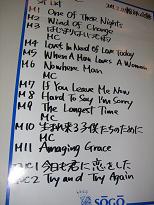 M1 One Of These Nights
M2 Wind of Change
M3 はじまりはいつも雨
MC
M4 Love's In Need Of Love Today
M5 When A Man Loves A Woman
M6 Nowhere Man
MC
M7 If You Leave Me Now
M8 Hard To Say I'm Sorry
M9 The Longest Time
MC
M10 生まれ来る子供たちのために
MC
M11 Amazing Grace
EC1 今日も君に恋をした
EC2 Try and Try Again
SOGO